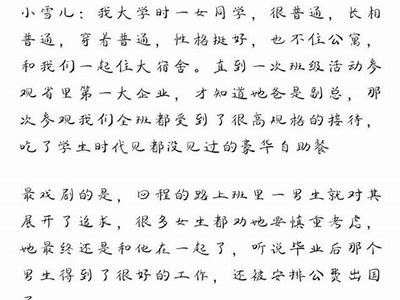 小雪儿：我大学时一女同学，很普通，长相
普通，穿着普通，性格挺好，也不住公寓，
和我们一起住大宿舍。直到一次班级活动参
观省里第一大企业，才知道她爸是副总，那
次参观我们全班都受到了很高规格的接待，
吃了学生时代见都没见过的豪华自助餐
最戏剧的是，回程的路上班里一男生就对其
展开了追求，很多女生都劝她要慎重考虑，
她最终还是和他在一起了，听说毕业后那个
男生得到了很好的工作，还被安排公费出国
了